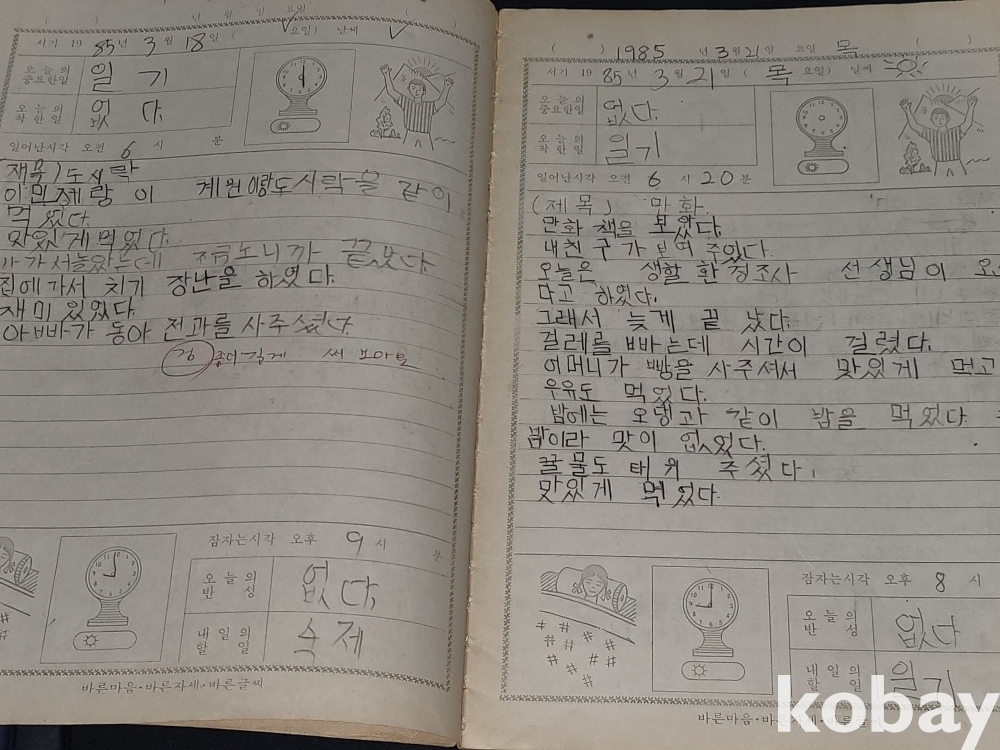 년 월 일 요일) 날씨
서기 19 85년 3월 18일 (
오늘의 중요한일 일기
오늘의 착한일 없다.
일어난시각 오전 6 시 분
제목) 도시락
이 계원이랑도시락을 같이
먹었다.
맛있게먹었다.
끝났다.
집에가서 치기 장난을 하였다.
재미있었다.
아빠가 동아 전과를 사주셨다.
좀더길게 써 보아요
잠자는시각 오후 9시 분
오늘의 반성 없다.
내일의 할일 숙제
바른마음·바른자세·바른글씨
( ) 1985 년 3월 21일 요일 목 ( )
서기 19 85년 3월 21일 ( 목 요일) 날씨
오늘의 중요한일 없다.
오늘의 착한일 일기
일어난시각 오전 6 시 20분
(제목) 만화
만화 책을 보았다.
내친구가 보여 주었다.
오늘은 생활 환경조사 선생님이 오
다고 하였다.
그래서 늦게 끝 났다.
걸레를 빠는데 시간이 걸렸다.
어머니가 빵을 사주셔서 맛있게 먹고
우유도 먹었다.
밤에는 오뎅과 같이 밥을 먹었다.
밥이라 맛이 없었다.
꿀물도 태워 주셨다.
맛있게 먹었다.
잠자는시각 오후 8 시
오늘의 반성 없다
내일의 할일 일기
바른마음·바른자세·바른글씨
kobay